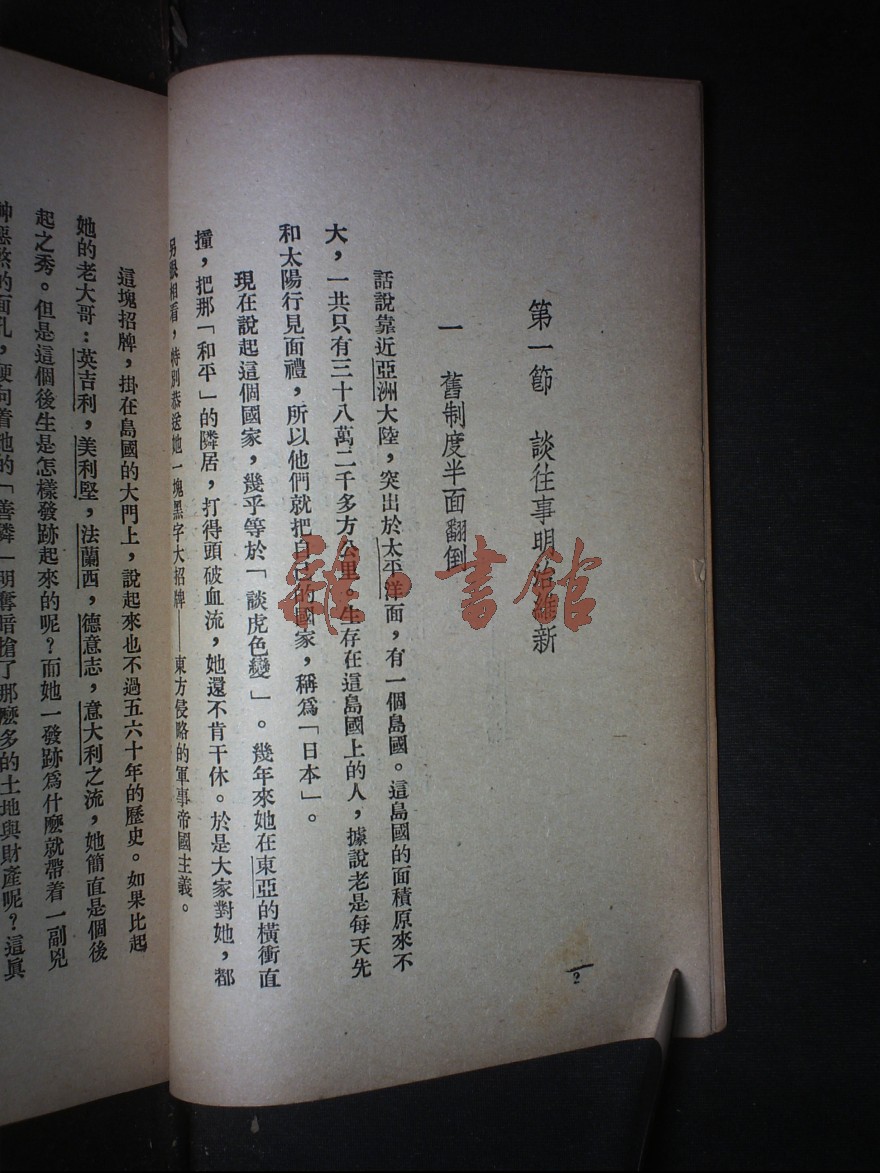 第一節　談往事明治維新
一　舊制度半面翻倒
話說靠近亞洲大陸，突出於太平洋面，有一個島國。這島國的面積原來不
大，一共只有三十八萬二千多方公里，生存在這島國上的人，據說老是每天先
和太陽行見面禮，所以他們就把自己的國家，稱爲「日本」。
現在說起這個國家，幾乎等於「談虎色變」。幾年來她在東亞的橫衝直
撞，把那「和平」的隣居，打得頭破血流，她還不肯干休。於是大家對她，都
另眼相看，特別恭送她一塊黑字大招牌——東方侵略的軍事帝國主義。
這塊招牌，掛在島國的大門上，說起來也不過五六十年的歷史。如果比起
她的老大哥：英吉利，美利堅，法蘭西，德意志，意大利之流，她簡直是個後
起之秀。但是這個後生是怎樣發跡起來的呢？而她一發跡爲什麽就帶着一副兇
神惡煞的面孔，便向着她的「善隣」明奪暗搶了那麽多的土地與財產呢？這眞
2
雜·書館